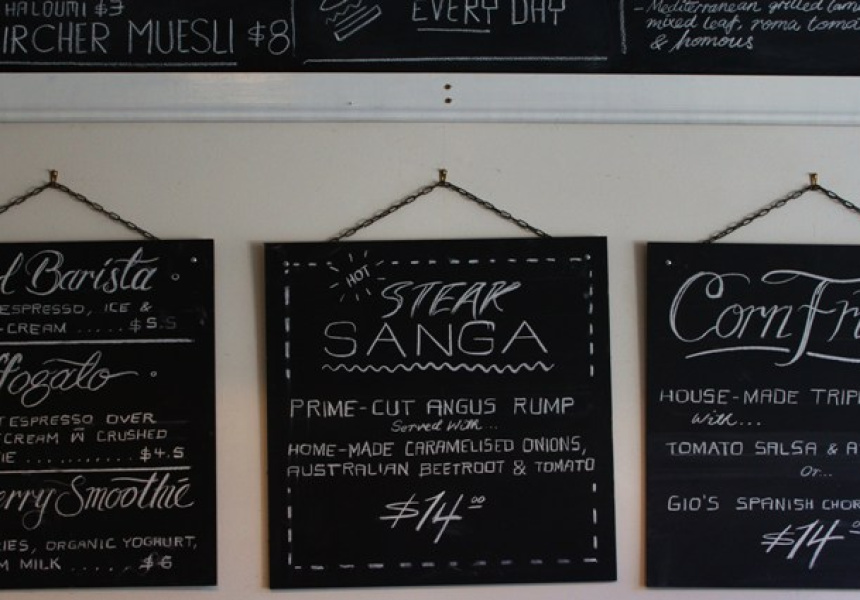 HALOUMI $3
IRCHER MUESLI $8
EVERY DAY
- Mediterranean grilled lam
mixed leaf, roma toma
& homous
d Barista
ESPRESSO, ICE &
-CREAM ..... $5.5
ffogato
ESPRESSO OVER
CREAM W CRUSHED
IE .......... $4.5
erry Smoothie
IES, ORGANIC YOGHURT,
M MILK ..... $6
HOT
STEAK
SANGA
PRIME-CUT ANGUS RUMP
Served With...
HOME-MADE CARAMELISED ONIONS,
AUSTRALIAN BEETROOT & TOMATO
$14.00
Corn Fri
HOUSE-MADE TRIPL
With...
TOMATO SALSA & A
Or...
GIO'S SPANISH CHOR
$14